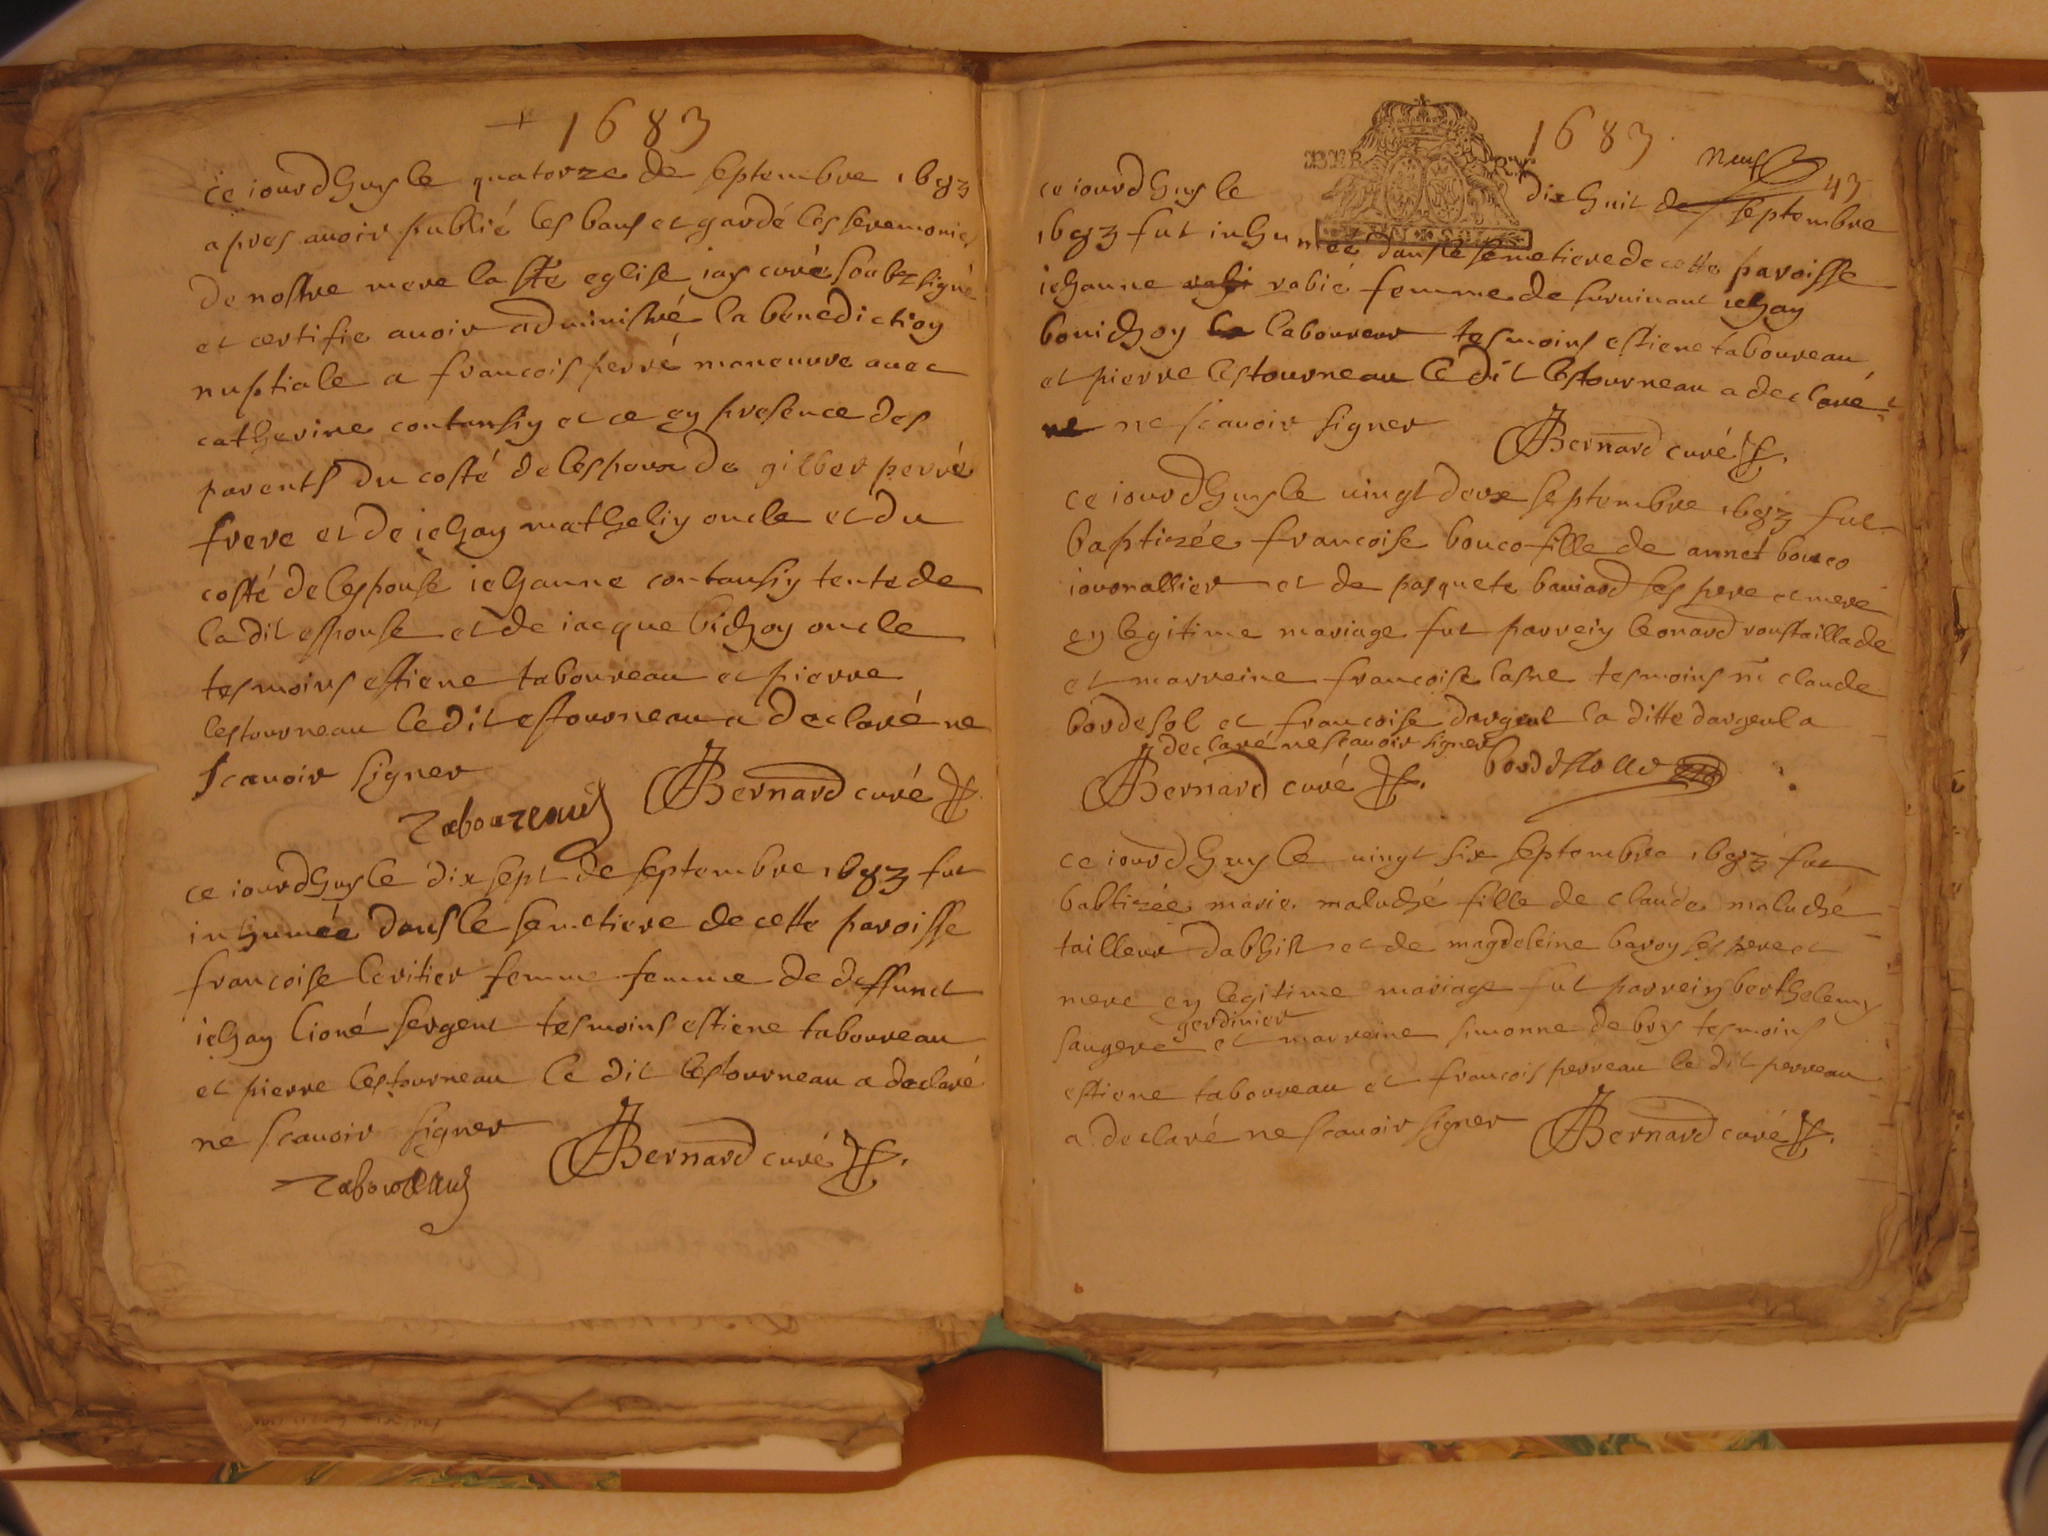 1683
ce iourdhuy le quatorze de septembre 1683
apres auoir publié les bans et gardé les seremonies
de nostre mere la ste eglise iay curé soubz signé
et certifie auoir administré la benediction
nuptiale a francois perré maneuvre auec
catherine contansin et ce en presence des
parents du costé de lespoux de gilber perré
frere et de iehan mathelin oncle et du
costé de lespouse iehanne contansin tente de
la dit espouse et de iacque bichon oncle
tesmoins estiene taboureau et pierre
lestourneau le dit estourneau a declaré ne
scauoir signer
Taboureau JBernard curé
ce iourdhuy le dix sept de septembre 1683 fut
inhumée dans le semetiere de cette paroisse
francoise leritier femme femme de deffunct
iehan lioné sergent tesmoins estiene taboureau
et pierre lestourneau le dit lestourneau a declaré
ne scauoir signer JBernard curé
Taboureau
1683
neuf
43
ce iourdhuy le dix huit de septembre
1683 fut inhumée dans le semetiere de cette paroisse
iehanne rabié femme de suruiuant iehan
bouichon laboureur tesmoins estiene taboureau
et pierre lestourneau le dit lestourneau a declaré
ne scauoir signer JBernard curé
ce iourdhuy le uingt deux septembre 1683 fut
baptizée francoise bouco fille de annet bouco
iournallier et de pasquete bauiard ses pere et mere
en legitime mariage fut parrein leonard roustaillade
et marreine francoise lasne tesmoins m claude
bordesol et francoise dargent la ditte dargent a
declaré ne scauoir signer
JBernard curé
ce iourdhuy le uingt six septembre 1683 fut
babtizée marie maluché fille de claude maluché
tailleur dabhist et de magdeleine baron ses pere et
mere en legitime mariage fut parrein berthelemy
saugere gerdinier et marreine simonne de brys tesmoins
estiene taboureau et francois perreau le dit perreau
a declaré ne scauoir signer JBernard curé